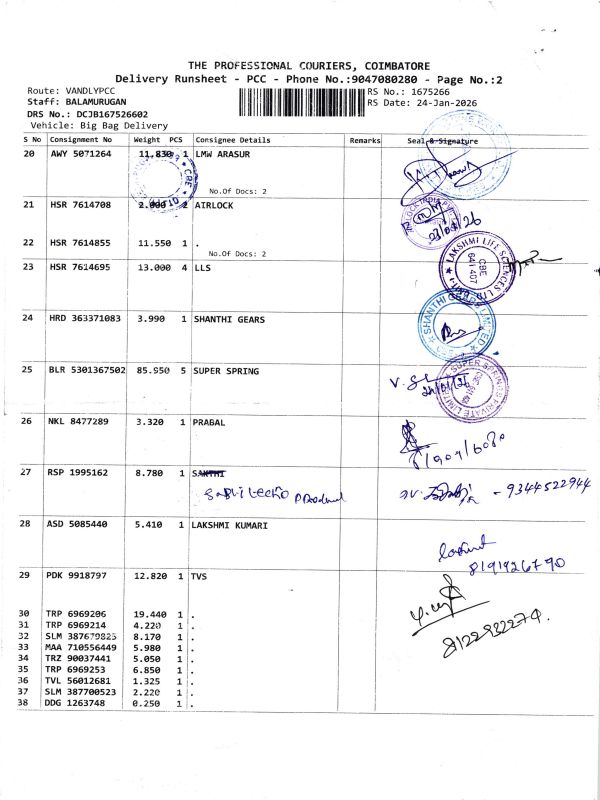 THE PROFESSIONAL COURIERS, COIMBATORE
Delivery Runsheet - PCC - Phone No.:9047080280 - Page No.:2
Route: VANDLYPCC RS No.: 1675266
Staff: BALAMURUGAN RS Date: 24-Jan-2026
DRS No.: DCJB167526602
Vehicle: Big Bag Delivery
S No Consignment No Weight PCS Consignee Details Remarks Seal & Signature
20 AWY 5071264 11.830 1 LMW ARASUR
No.Of Docs: 2
21 HSR 7614708 2.000 2 AIRLOCK
22 HSR 7614855 11.550 1 .
No.Of Docs: 2
23 HSR 7614695 13.000 4 LLS
LAKSHMI LIFE SCIENCES LTD
CBE
641 407
24 HRD 363371083 3.990 1 SHANTHI GEARS
SHANTHI GEARS LIMITED
25 BLR 5301367502 85.950 5 SUPER SPRING
SUPER SPRINGS PRIVATE LIMITED
26 NKL 8477289 3.320 1 PRABAL
27 RSP 1995162 8.780 1 SAKTHI
- 9344522944
28 ASD 5085440 5.410 1 LAKSHMI KUMARI
8191926790
29 PDK 9918797 12.820 1 TVS
30 TRP 6969206 19.440 1 .
31 TRP 6969214 4.220 1 .
32 SLM 387679825 8.170 1 .
33 MAA 710556449 5.980 1 .
34 TRZ 90037441 5.050 1 .
35 TRP 6969253 6.850 1 .
36 TVL 56012681 1.325 1 .
37 SLM 387700523 2.220 1 .
38 DDG 1263748 0.250 1 .